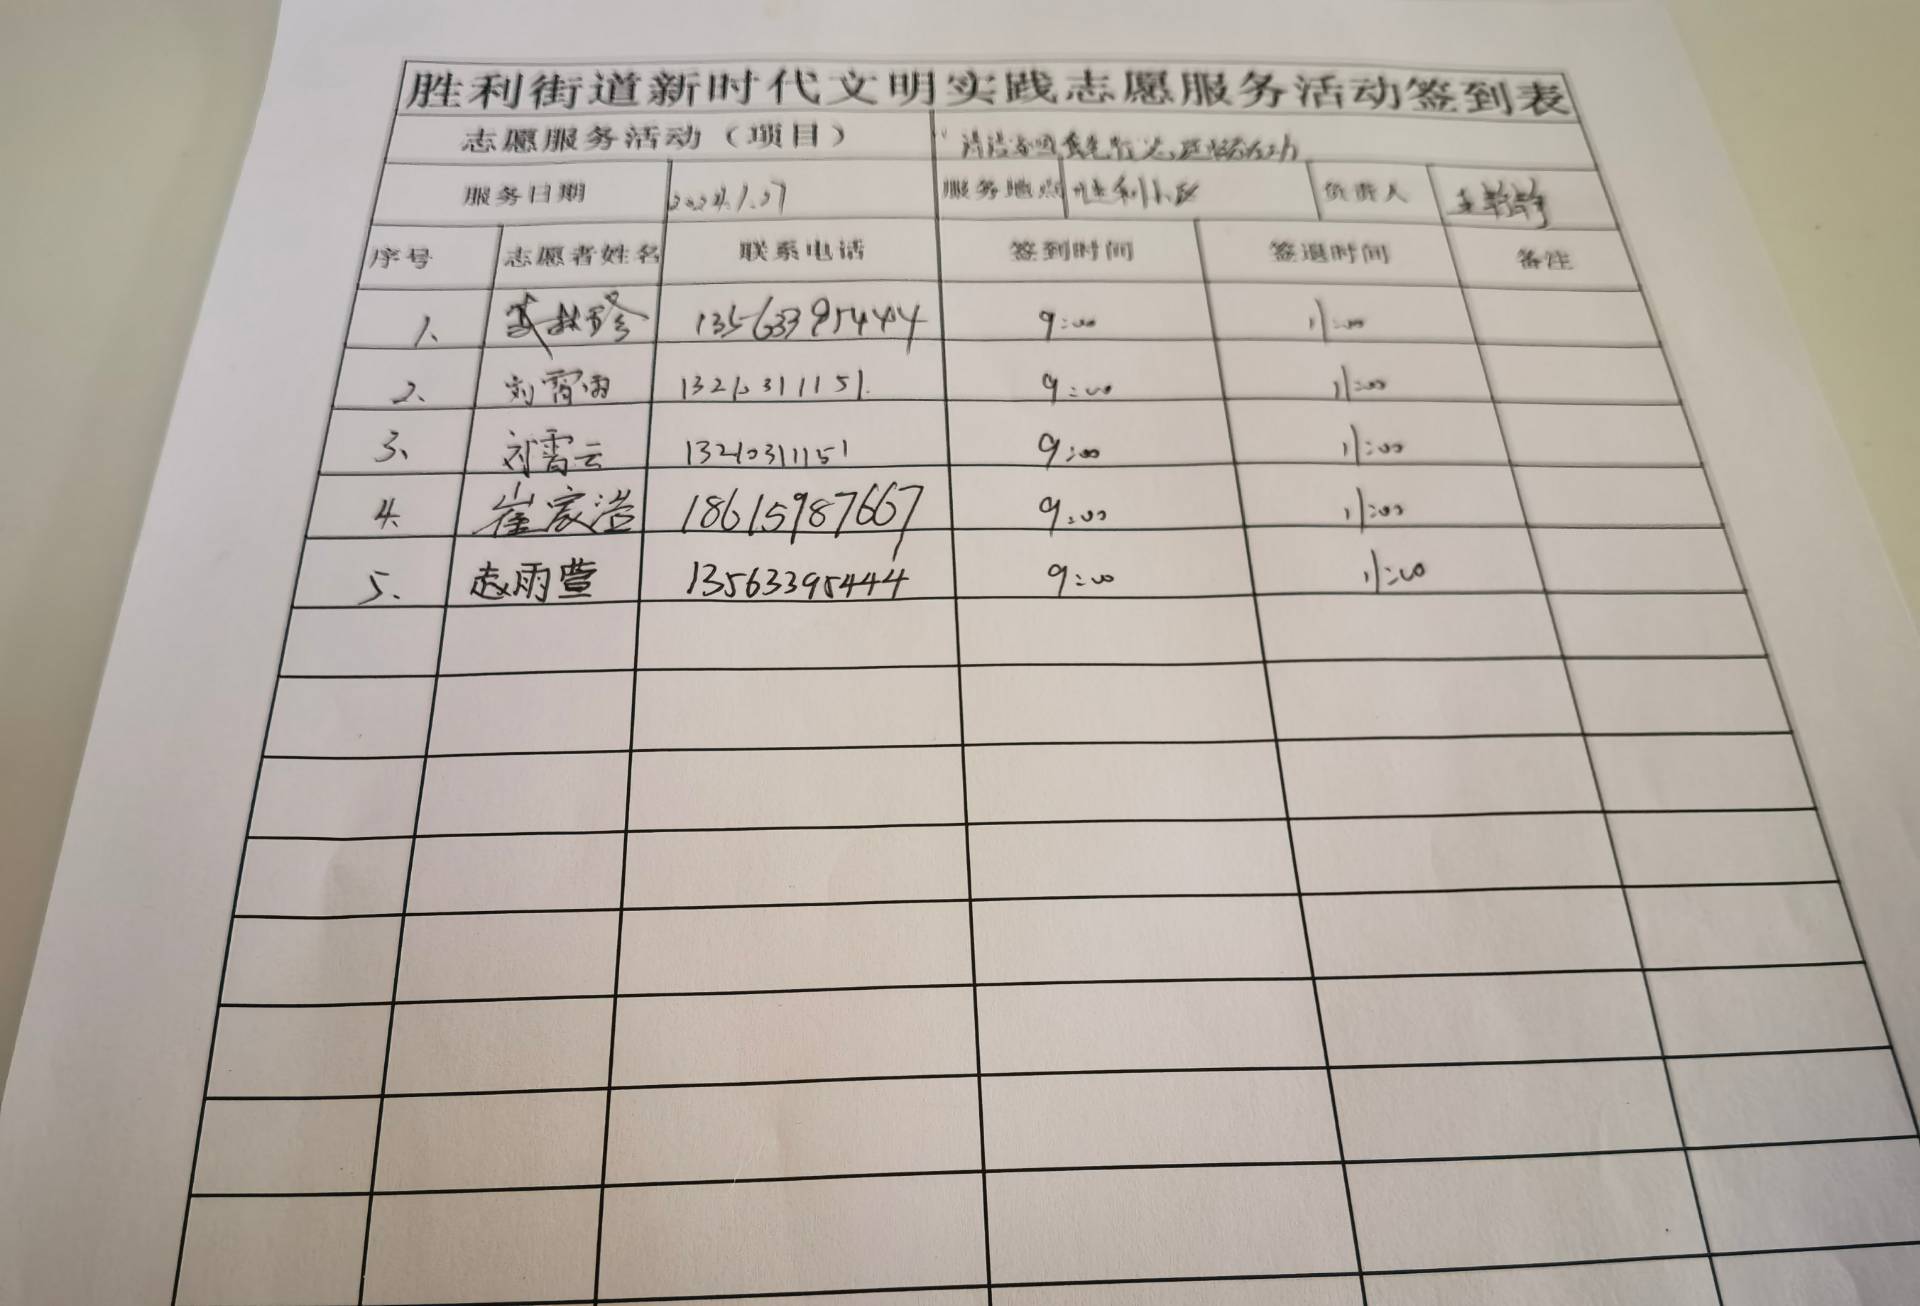 胜利街道新时代文明实践志愿服务活动签到表
志愿服务活动（项目）
服务日期 2024.1.27 服务地点 胜利小区 负责人
序号 志愿者姓名 联系电话 签到时间 签退时间 备注
1、 13563395444 9:00 11:00
2、 刘霄雨 13210311151. 9:00 11:00
3、 刘霄云 13210311151 9:00 11:00
4、 崔家浩 18615987667 9:00 11:00
5、 赵雨萱 13563395444 9:00 11:00